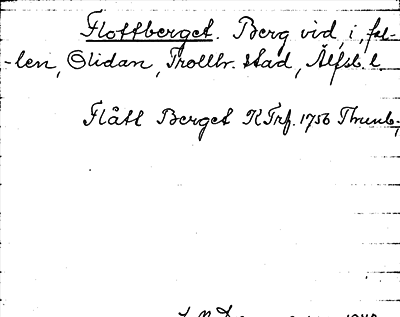 Flottberget. Berg vid, i, fal-
-len, Olidan, Trollh. stad, Älfsb. l.
Flått Berget KTrf. 1756 Thunb.